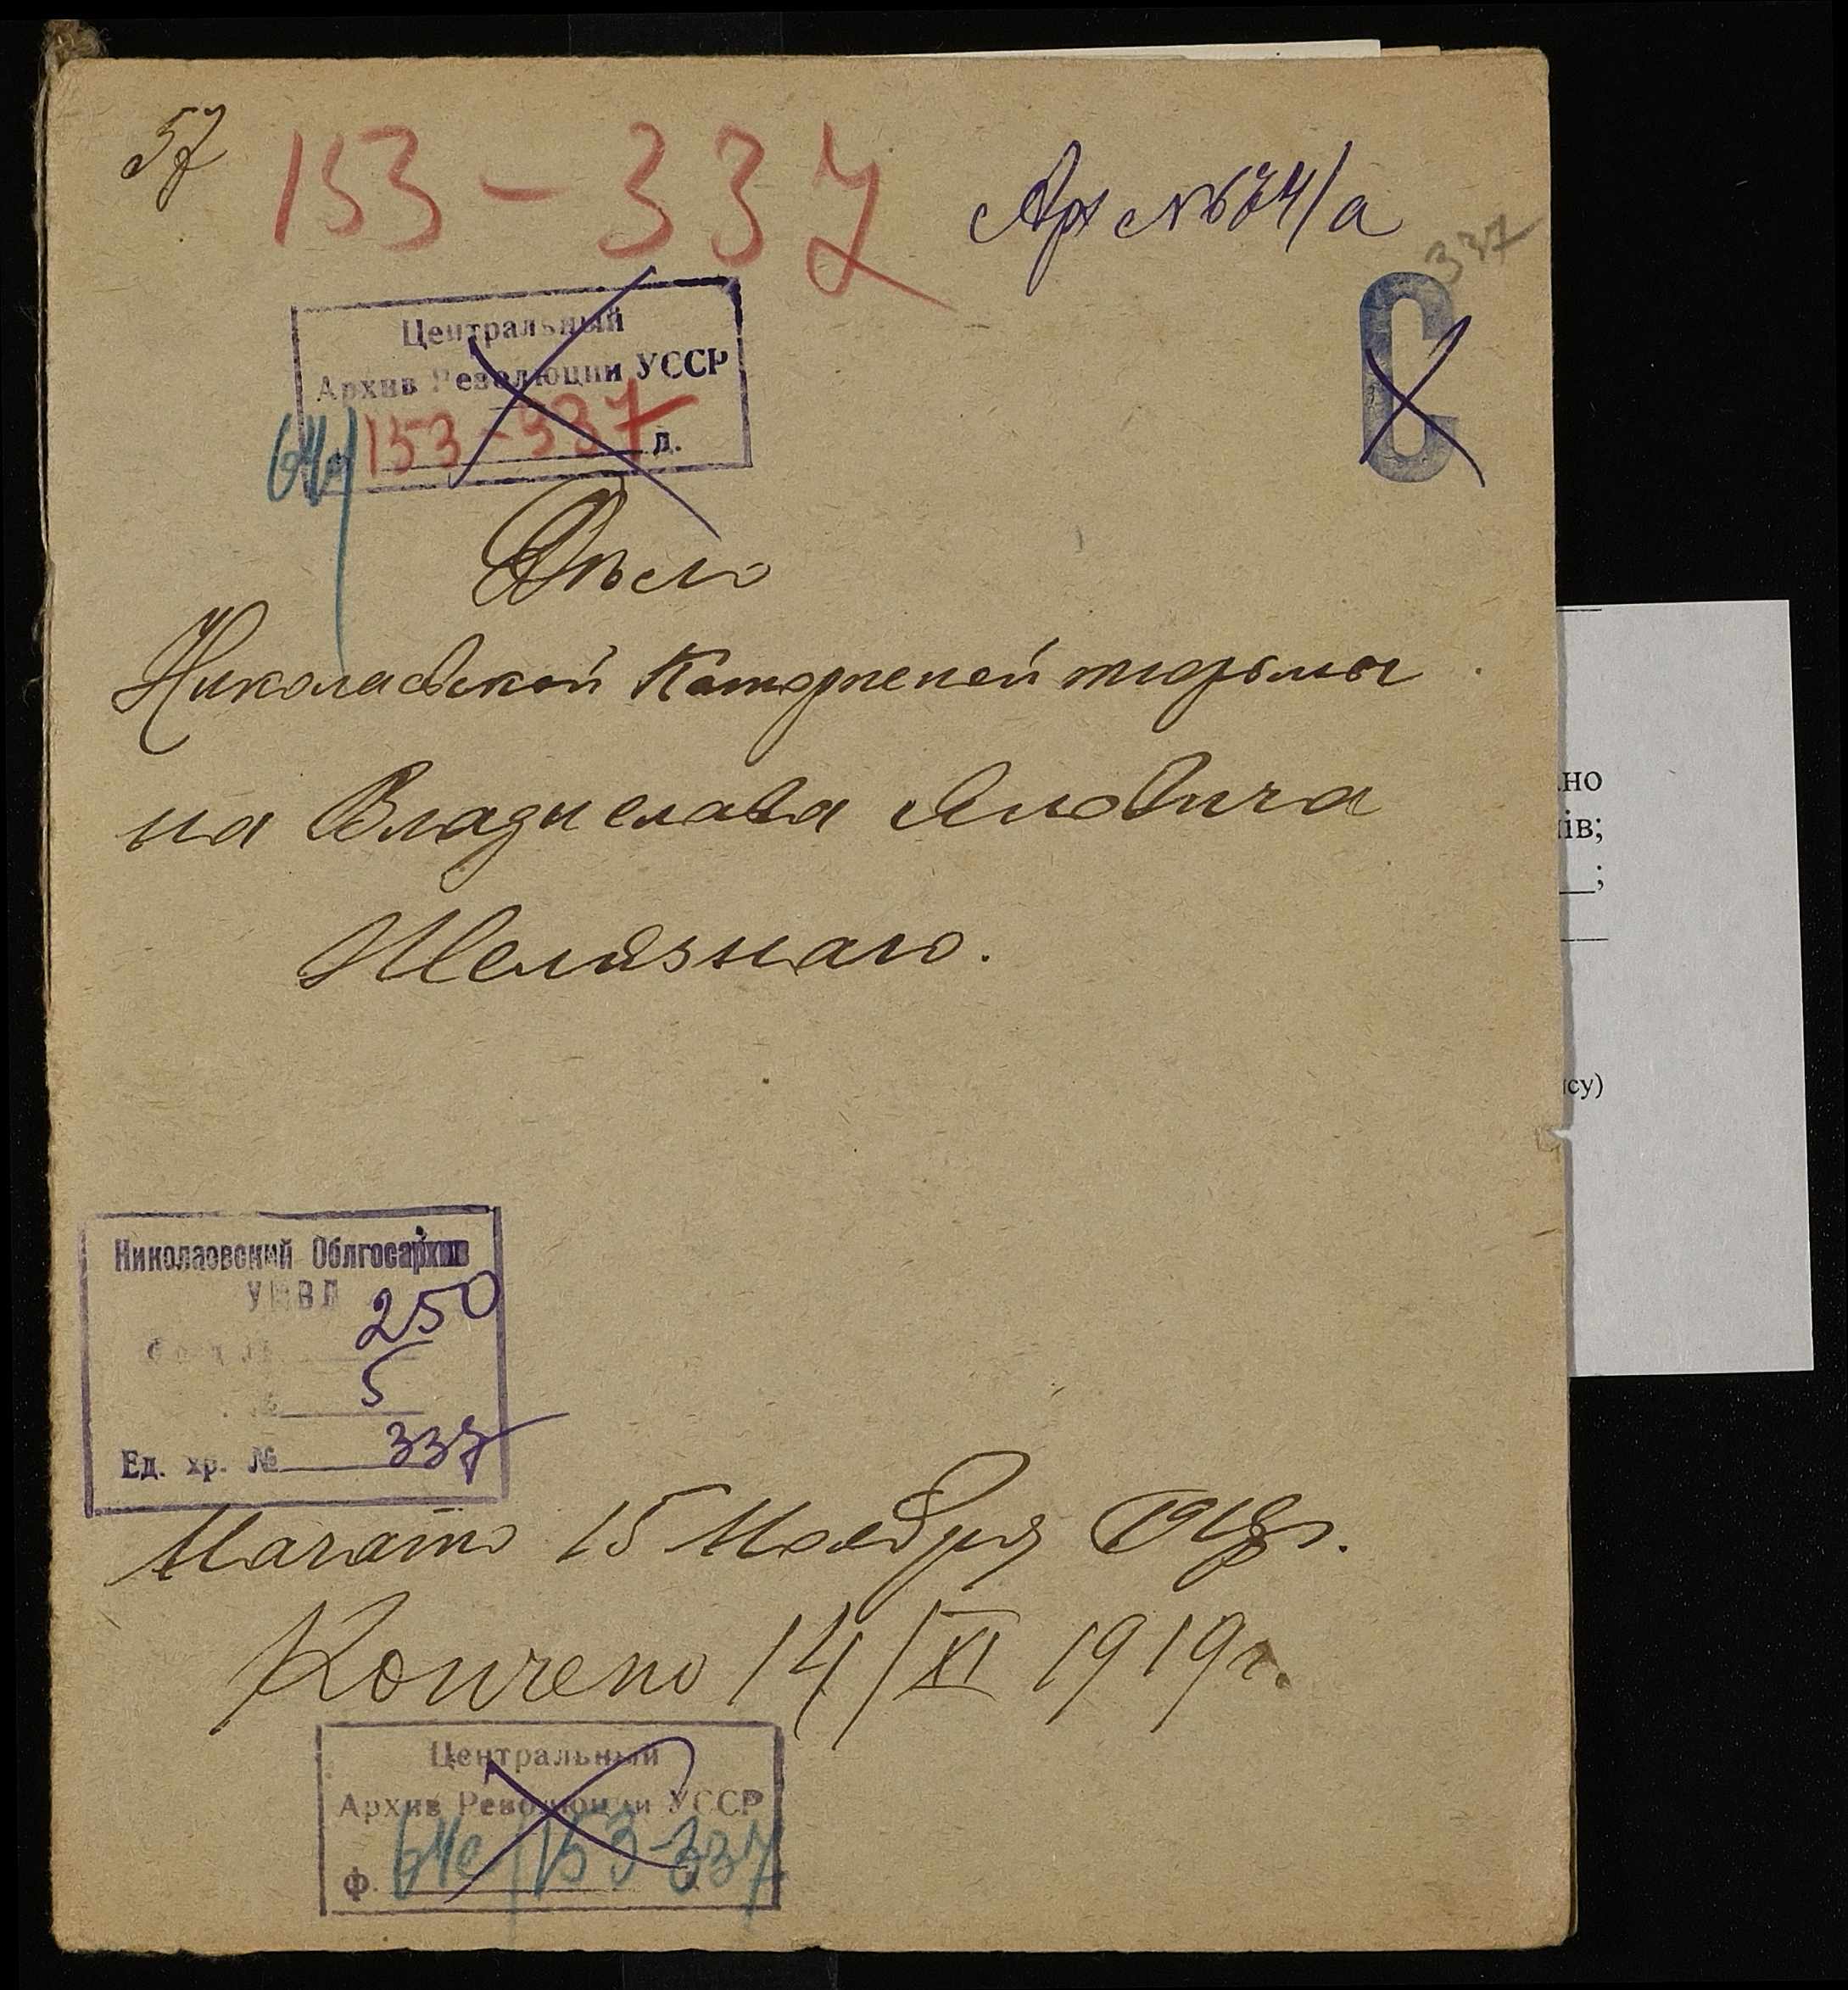 57
153 – 337
Арх №674/а
337
Центральный
Архив Революции УССР
64а/153-337 д.
С
Дѣло
Николаевской Каторжной тюрьмы
на Владислава Яновича
Желязнаго.
но
ів;
;
су)
Николаевский Облгосархив
УМВД
Фонд № 250
№ 5
Ед. хр. № 337
Начато 15 Ноября 191
Кончено 14/XI 1919г.
Центральный
Архив Революции УССР
Ф. 64а/153-337